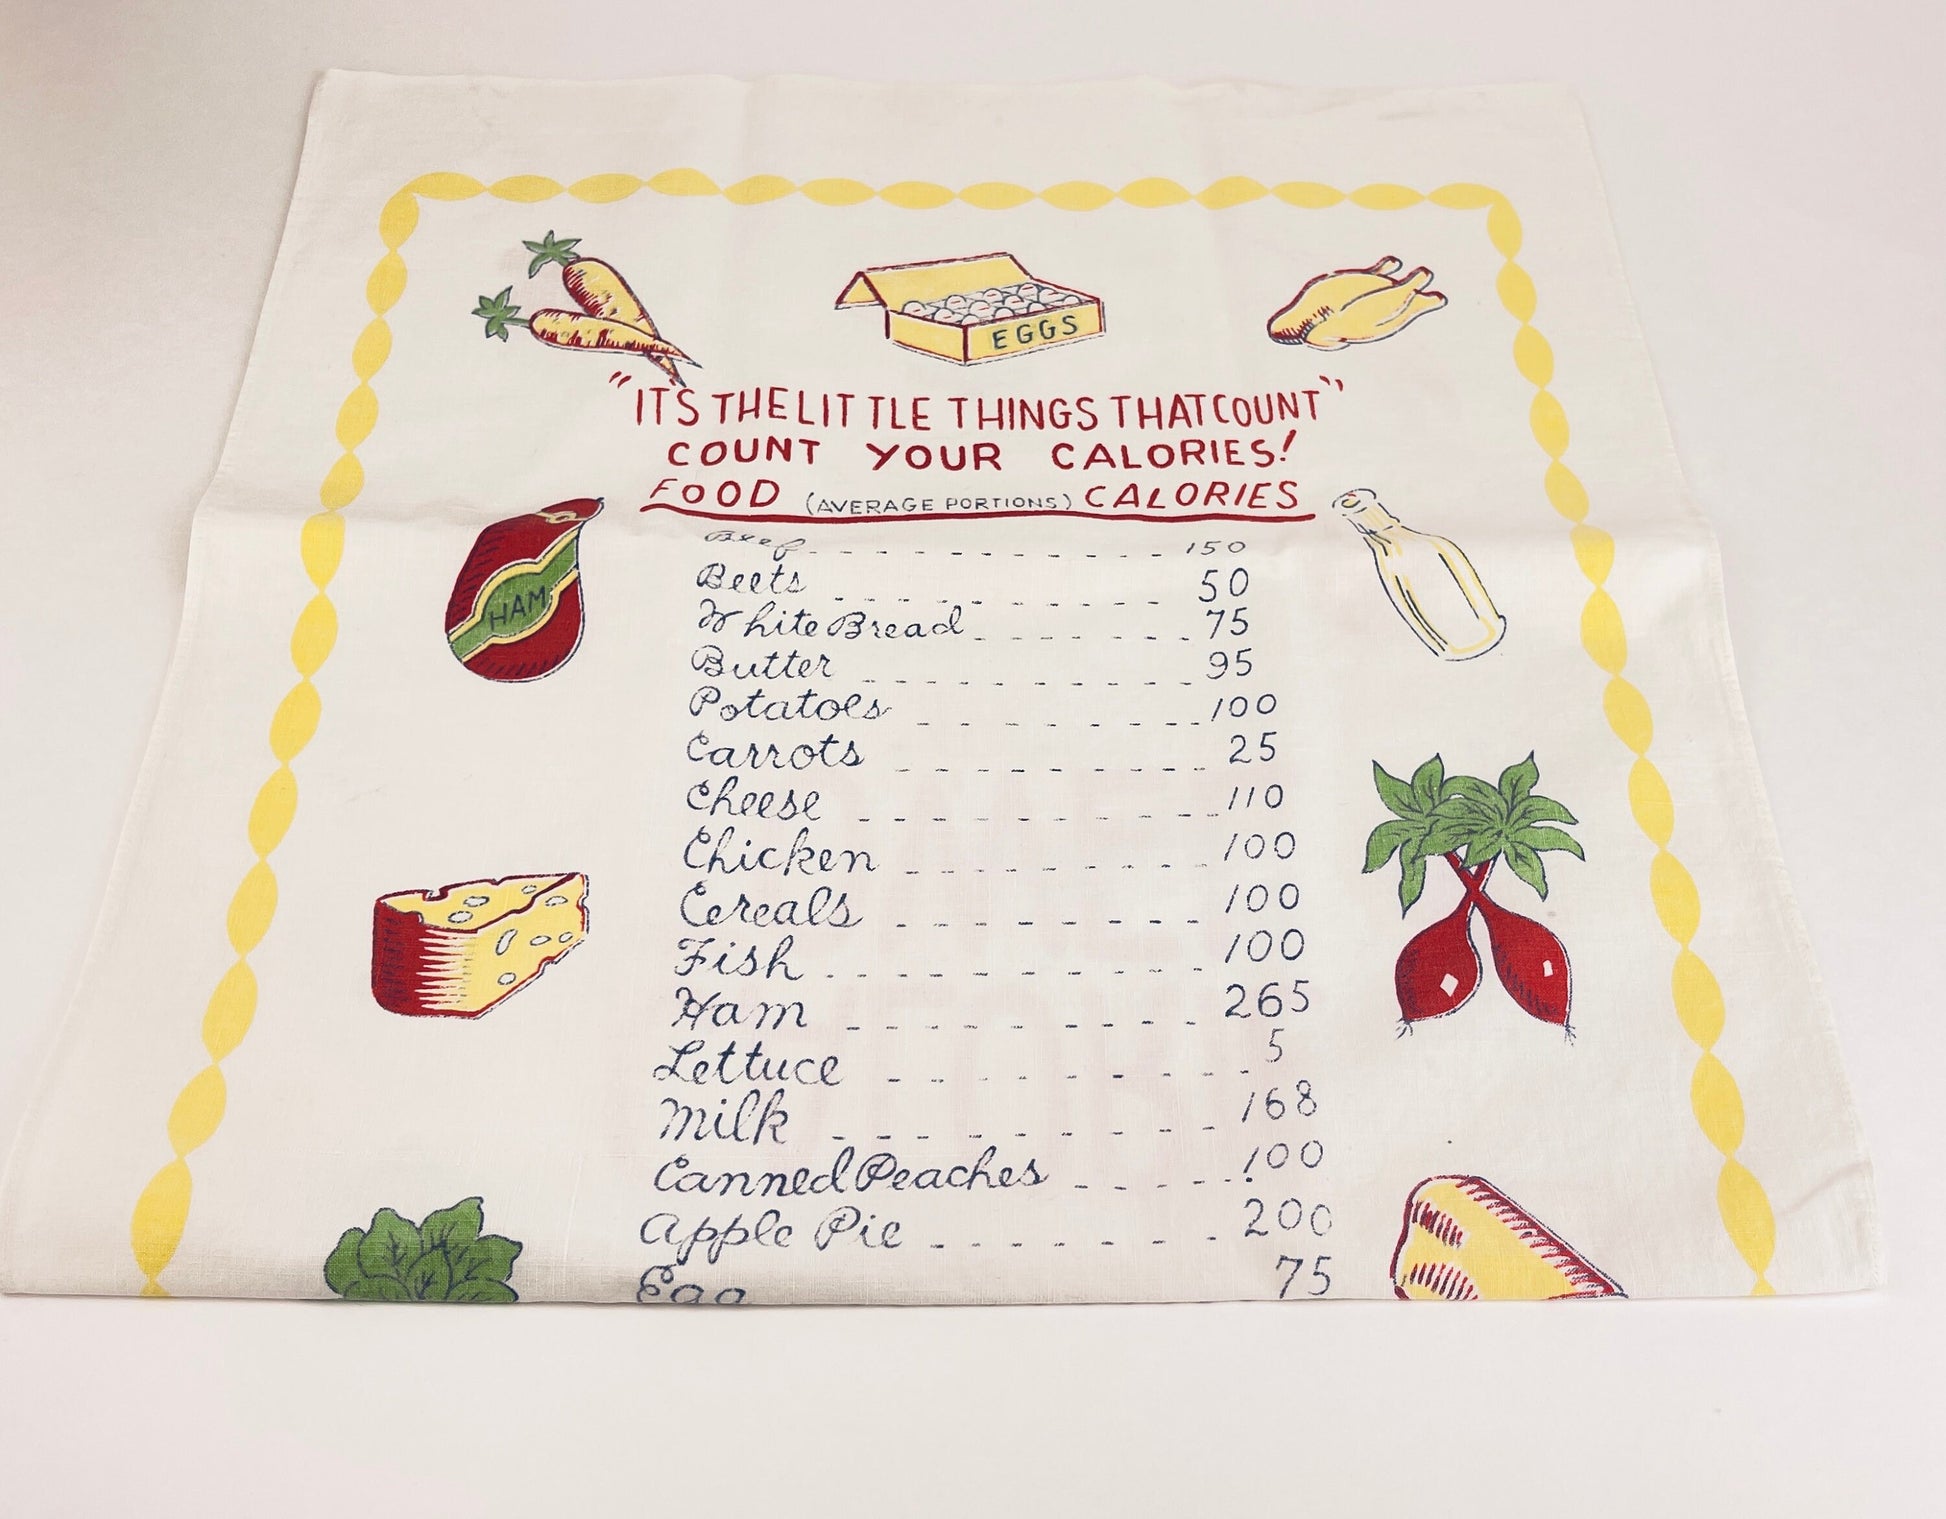 EGGS
"IT'S THE LITTLE THINGS THAT COUNT"
COUNT YOUR CALORIES!
FOOD (AVERAGE PORTIONS) CALORIES
HAM
Beef 150
Beets 50
White Bread 75
Butter 95
Potatoes 100
Carrots 25
Cheese 110
Chicken 100
Cereals 100
Fish 100
Ham 265
Lettuce 5
Milk 168
Canned Peaches 100
Apple Pie 200
Egg 75